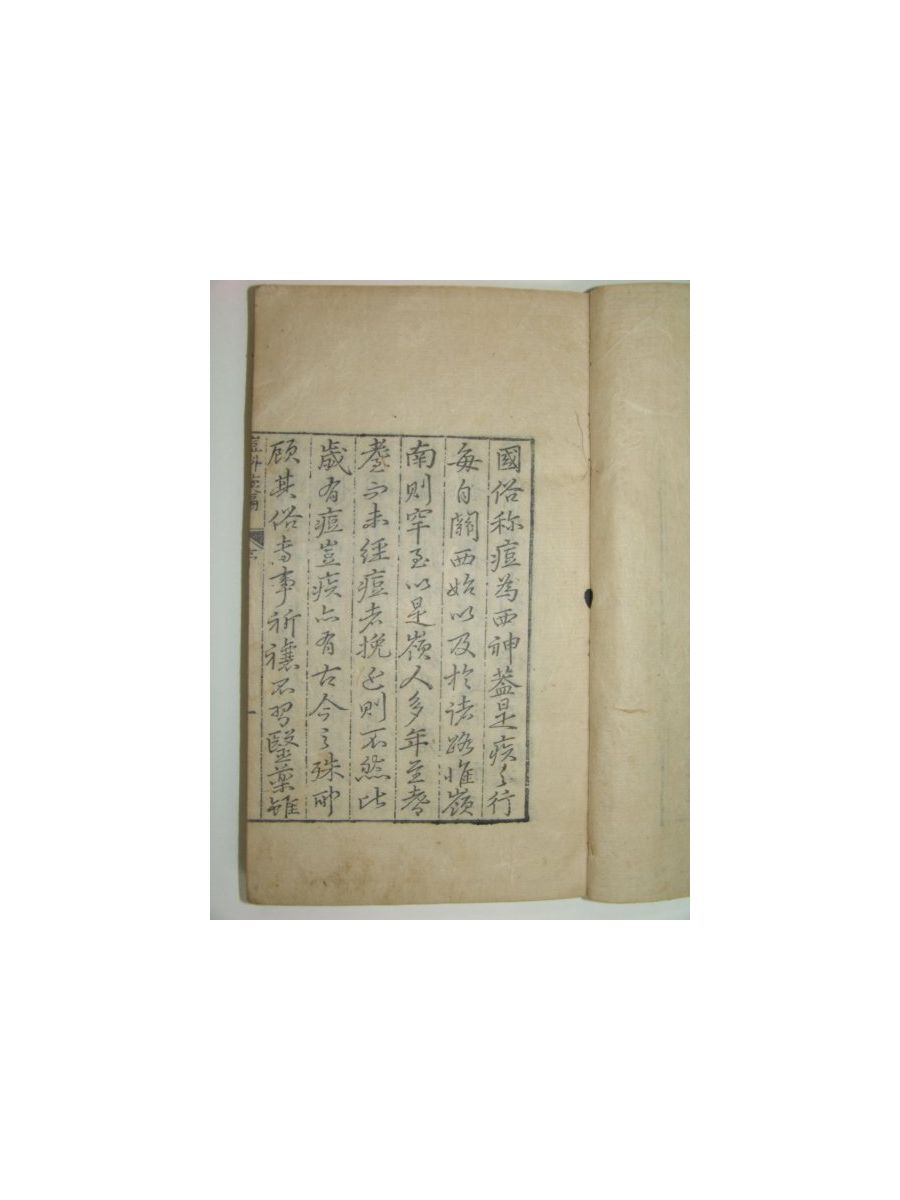 國俗称痘為西神蓋是疾之行
每自關西始以及於諸路惟嶺
南則罕至以是嶺人多年至耆
耋而未經痘者挽近則不然比
歲有痘豈疾亦有古今之殊耶
顧其俗專事祈禳不習醫藥雖
痘科
序
一